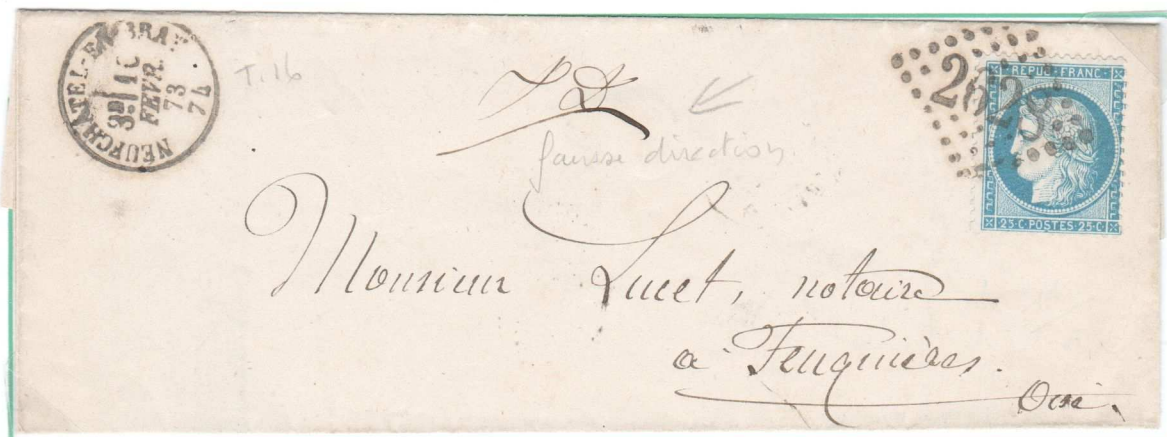 NEUFCHATEL-EN-BRAY
3E 1
FEVR.
73
74
T.16
fausse direction
262
REPUB FRANC
25·C POSTES 25·C
Monsieur Lucet, notaire
a Feuquières.
Oise.